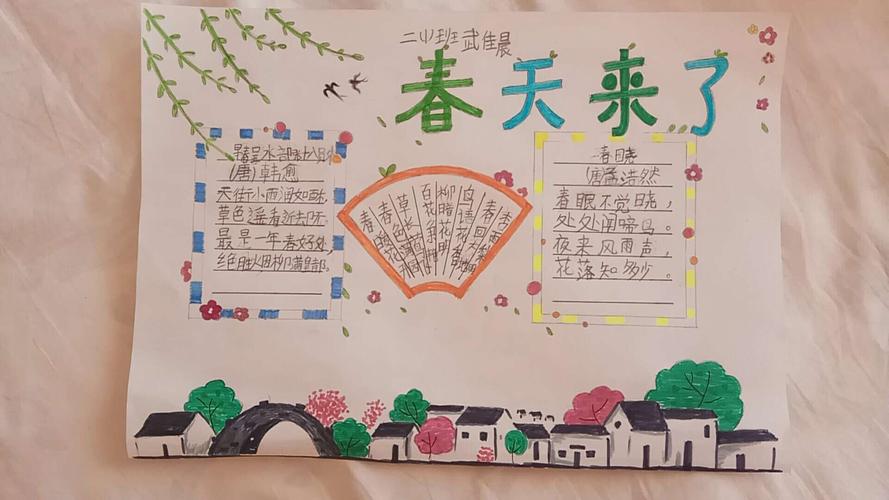 二小班 武佳晨
春天来了
早春呈水部张十八员外
(唐)韩愈
天街小雨润如酥，
草色遥看近却无。
最是一年春好处，
绝胜烟柳满皇都。
杏雨梨
春回大地
鸟语花香
柳暗花明
百花争艳
草长莺飞
春色满园
春暖花开
春晓
(唐)孟浩然
春眠不觉晓，
处处闻啼鸟。
夜来风雨声，
花落知多少。